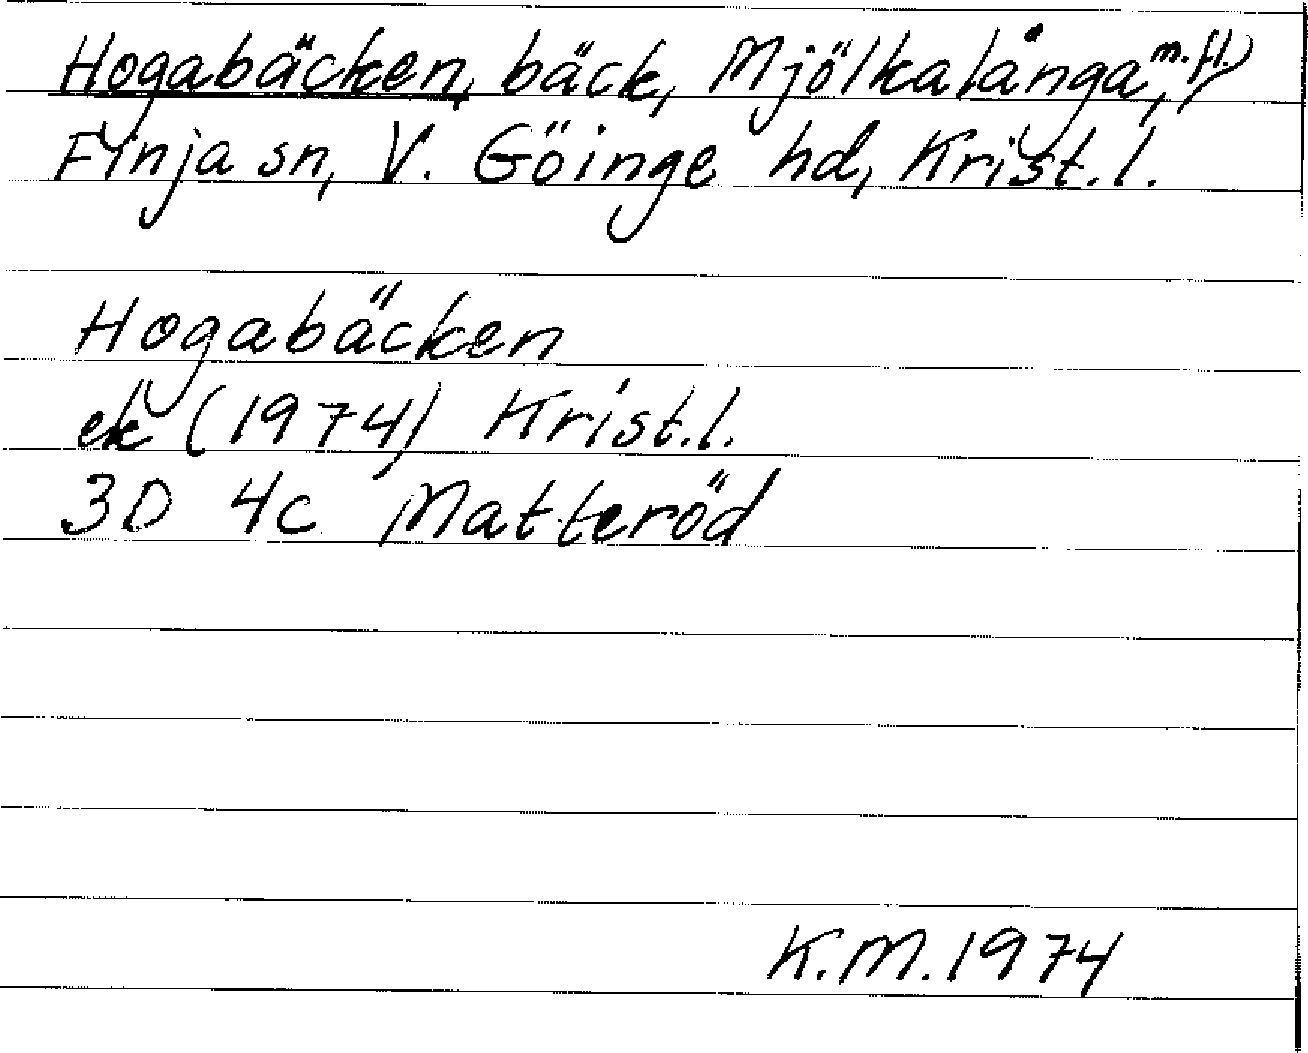 Hogabäcken, bäck, Mjölkalånga, m.fl.
Finja sn, V. Göinge hd, Krist.l.
Hogabäcken
ek (1974) Krist.l.
3D 4c Matteröd
K.M. 1974